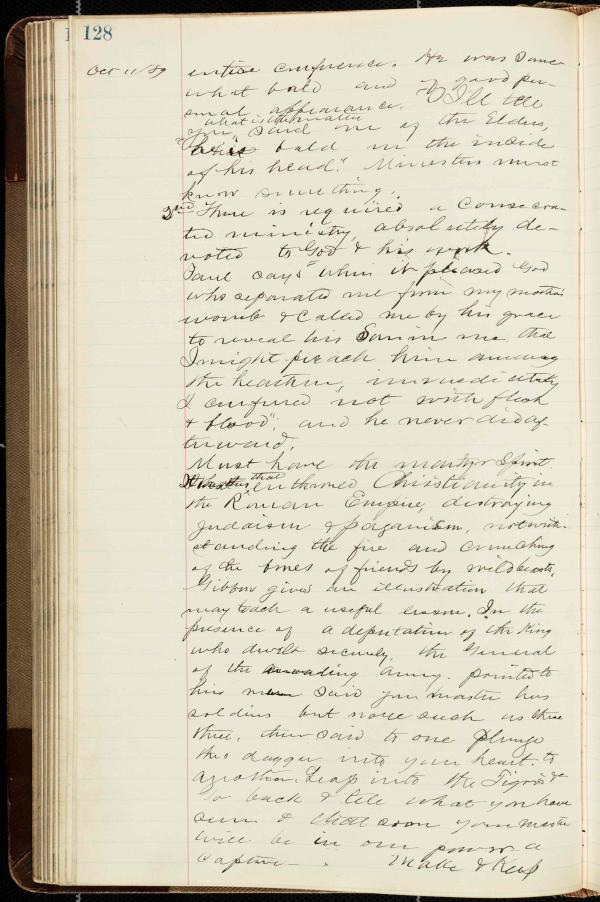 128
Oct 11/89
entire conference. He was some
what bald and of good per-
sonal appearance. "I'll tell
what is the matter
you, said one of the Elders,
"he is bald on the inside
of his head." Ministers must
know something.
2nd There is required a consecra-
ted ministry, absolutely de-
voted to God & his work.
Paul says "when it pleased God
who separated me from my mothers
womb & called me by his grace
to reveal his Son in me that
I might preach him among
the heathen, immediately
I confered not with flesh
& blood", and he never did af-
terward.
Must have the martyr Spirit.
that
enthroned Christianity in
the Roman Empire, destroying
Judaism & paganism, notwith-
standing the fire and crunching
of the bones of friends by wild beasts.
Gibbon gives an illustration that
may teach a useful lesson. In the
presence of a deputation of the King
who dwelt securely, the General
of the invading army. pointed to
his men said your master has
soldiers but none such as these
three, then said to one plunge
this dagger into your heart. to
another. Leap into the Tigris &c
Go back & tell what you have
seen & that soon your master
will be in our power a
captive — . Make & Keep